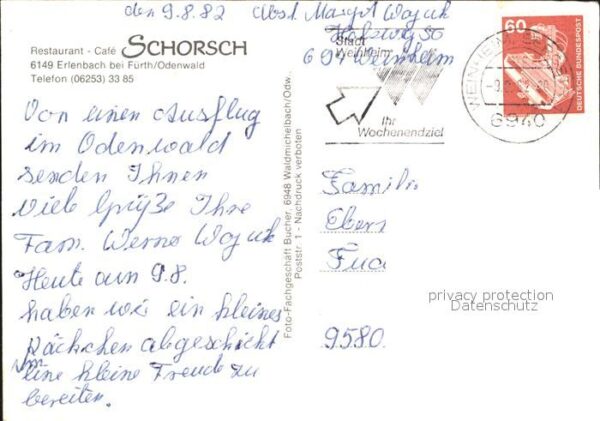 den 9.8.82 Abs. Margot Wojuk
6941 Weinheim
Restaurant - Café SCHORSCH
6149 Erlenbach bei Fürth/Odenwald
Telefon (06253) 33 85
Von einen Ausflug
im Odenwald
senden Ihnen
viele Grüße Ihre
Fam. Werner Wojuk
Heute am 9.8.
haben wir ein kleines
Päckchen abgeschickt
um eine kleine Freude zu
bereiten.
Foto-Fachgeschäft Bucher, 6948 Waldmichelbach/Odw.
Poststr. 1 - Nachdruck verboten
Stadt
Weinheim
Ihr
Wochenendziel
WEINHEIM
6940
60
DEUTSCHE BUNDESPOST
Familie
Ebers
9580
privacy protection
Datenschutz